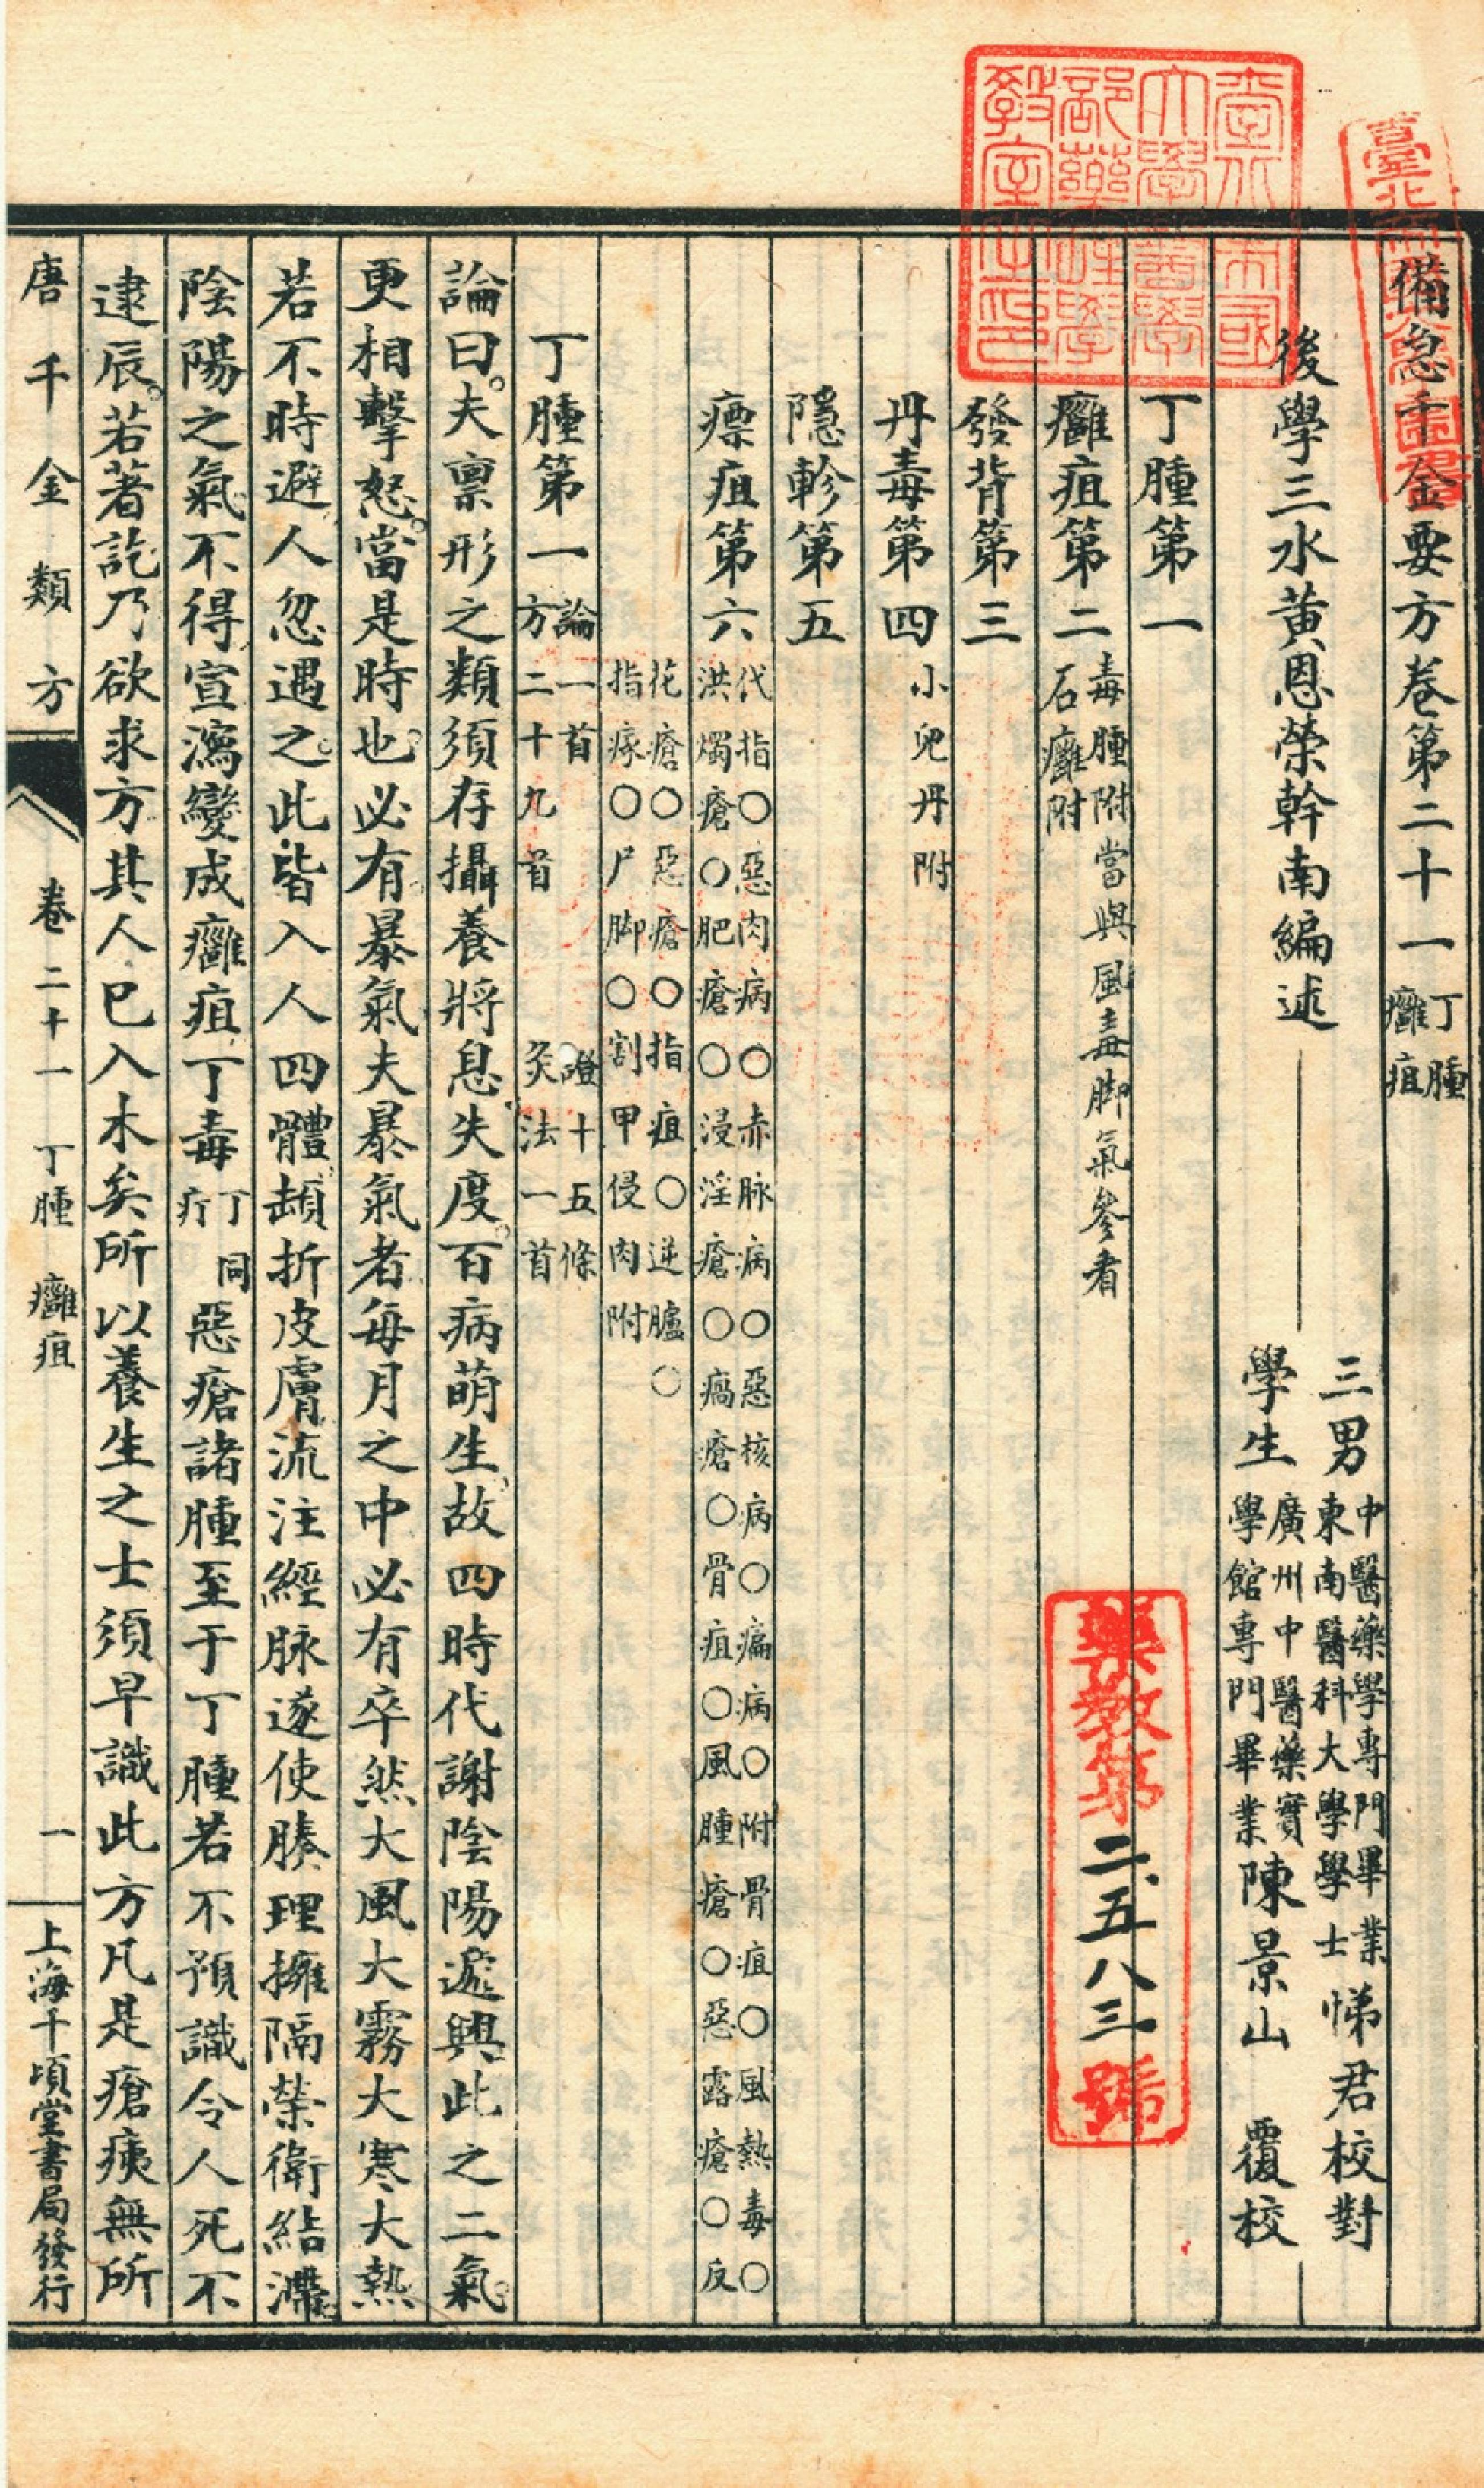 備急千金要方卷第二十一 丁腫 癰疽
後學三水黃恩榮幹南編述
三男 中醫藥學專門畢業 東南醫科大學學士 悌君校對
學生 廣州中醫藥實 學館專門畢業 陳景山 覆校
丁腫第一
癰疽第二 毒腫附當與風毒脚氣參看 石癰附
發背第三
丹毒第四 小兒丹附
隱軫第五
瘭疽第六 代指〇惡肉病〇赤脉病〇惡核病〇瘑病〇附骨疽〇風熱毒〇
洪燭瘡〇肥瘡〇浸淫瘡〇瘑瘡〇骨疽〇風腫瘡〇惡露瘡〇反
花瘡〇惡瘡〇指疽〇逆臚〇
指瘃〇尸脚〇割甲侵肉附
丁腫第一 論一首 方二十九首 證十五條 灸法一首
論曰。夫稟形之類須存攝養將息失度。百病萌生。故四時代謝陰陽遞興此之二氣
更相擊怒。當是時也必有暴氣夫暴氣者每月之中必有卒然大風大霧大寒大熱
若不時避人忽遇之此皆入人四體頞折皮膚流注經脉遂使腠理擁隔榮衛結滯
陰陽之氣不得宣瀉變成癰疽丁毒 丁疔同 惡瘡諸腫至于丁腫若不預識令人死不
逮辰。若著訖乃欲求方其人已入木矣所以養生之士須早識此方凡是瘡痍無所
唐千金類方 卷二十一 丁腫 癰疽 一 上海千頃堂書局發行
臺北帝國大學醫學部藥理學教室之印
藥教第二五八三號